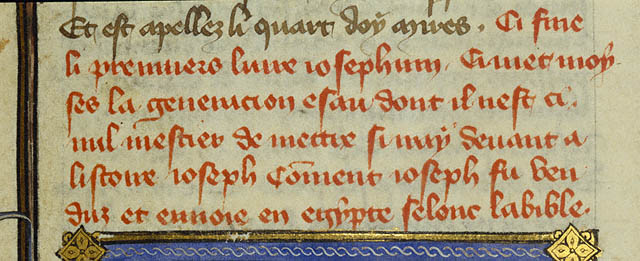 Et est apellez li quart doy ayres. Ci fine
li premiers livre iosephum. Ci met moy
ses la generacion esau dont il nest ci
nul mestier de mettre si vay devant a
listoire ioseph Coment ioseph fu ven
duz et envoie en egypte selonc la bible.